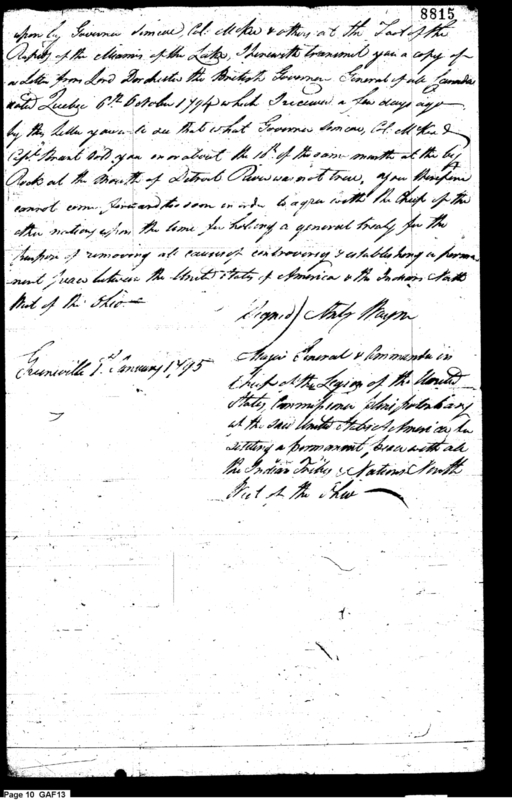 8815
upon by Governor Simcoe, Col. McKee & others at the Foot of the
Rapids of the Miamis of the Lake, I herewith transmit you a copy of
a Letter from Lord Dorchester the British Governor General of all Canada
dated Quebec 6th October 1794 which I received a few days ago
by this letter you will see that what Governor Simcoe, Col. McKee &
Capt Brant told you on or about the 10th of the same month at the big
Rock at the Mouth of Detroit River was not true, you therefore
cannot come forward too soon in order to agree with the Chiefs of the
other nations upon the time for holding a general treaty for the
purpose of removing all causes of controversy & establishing a perma
nent peace between the United States of America & the Indians North
West of the Ohio
(Signed) Anty Wayne
Greeneville 1st January 1795
Major General & Commander in
Chief of the Legion of the United
States, Commissioner plenipotentiary
of the said United States of America for
settling a permanent peace with all
the Indian Tribes & Nations North
West of the Ohio
Page 10 GAF13